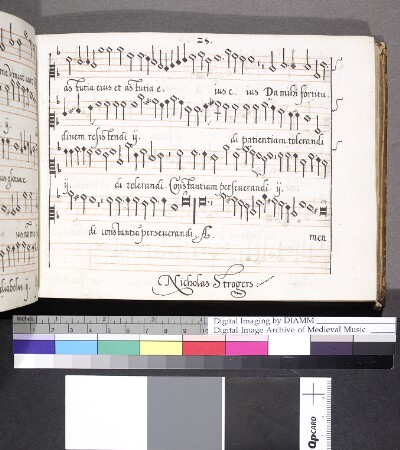 25.
astutia eius et astutia e. ius e. ius Da mihi fortitu.
dinem resistendi ij. di patientiam tolerandi
ij. di tolerandi Constantiam perseuerandi ij.
di constantiā perseuerandi. A
men
Nicholas Strogers
ij.
inches 1 2 3 4
Digital Imaging by DIAMM
Digital Image Archive of Medieval Music
QPCARD